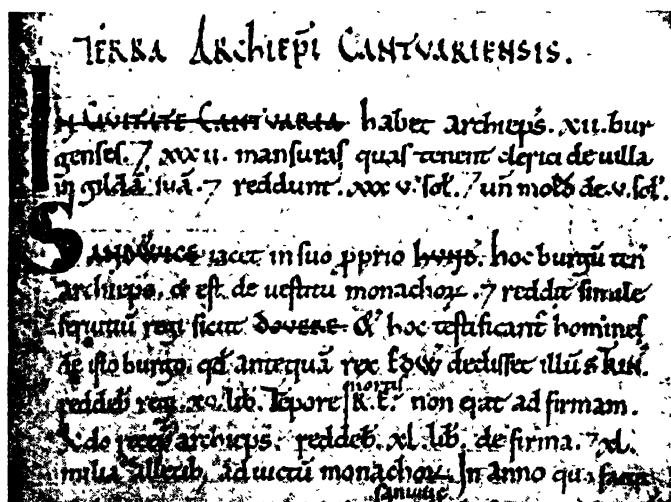 TERRA ARChIEPĪ CANTVARIENSIS.
IN CIVITATE CANTVARIA habet archiepˢ. xii. bur
genses. ⁊ xxxii. mansuras quas tenent clerici de uilla
in gildā suā. ⁊ reddunt. xxxv. sol. ⁊ un̄ mold̄ de. v. sol.
SANDWICE iacet in suo pprio hund. hoc burgū ten̄
archiepˢ. & est de uestitu monachoꝝ. ⁊ reddit simile
seruitiū regi sicut DOVERE. & hoc testificant̄ homines
de isto burgo. qd antequā rex EDW dedisset illud S TRIN.
reddeb regi. xv. lib. Tēpore mortis R.E. non erat ad firmam.
Qdo recep archiepˢ. reddeb. xl. lib. de firma. ⁊ xl.
milia allecib. ad uictu monachoꝝ. In anno quo facta